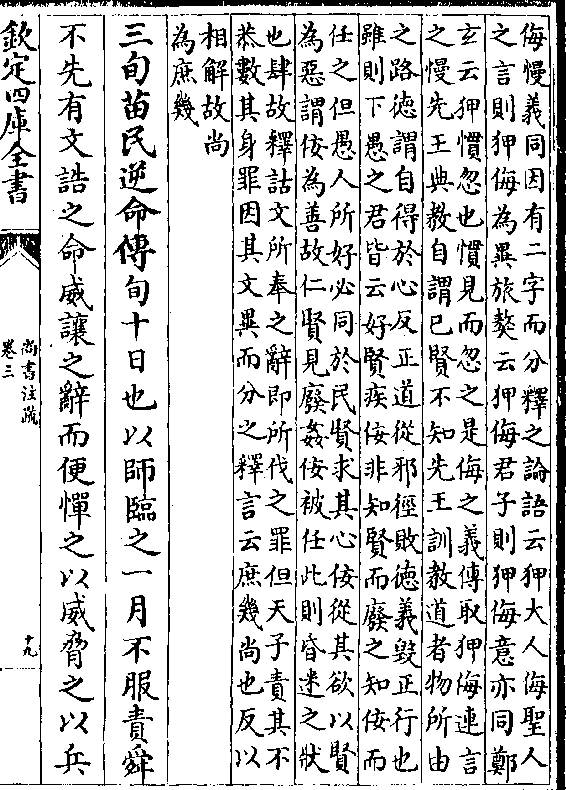 侮慢義同因有二字而分釋之論語云狎大人侮聖人
之言則狎侮為異旅獒云狎侮君子則狎侮意亦同鄭
玄云狎慣忽也慣見而忽之是侮之義傳取狎侮連言
之慢先王典教自謂已賢不知先王訓教道者物所由
之路徳謂自得於心反正道從邪徑敗徳義毀正行也
雖則下愚之君皆云好賢疾佞非知賢而廢之知佞而
任之但愚人所好必同於民賢求其心佞從其欲以賢
為惡謂佞為善故仁賢見廢姦佞被任此則昏迷之狀
也肆故釋詁文所奉之辭即所伐之罪但天子責其不
恭數其身罪因其文異而分之釋言云庶幾尚也反以
相解故尚
為庶幾
三旬苗民逆命傳旬十日也以師臨之一月不服責舜
不先有文誥之命威讓之辭而便憚之以威脅之以兵
欽定四庫全書
尚書注疏
卷三
十九